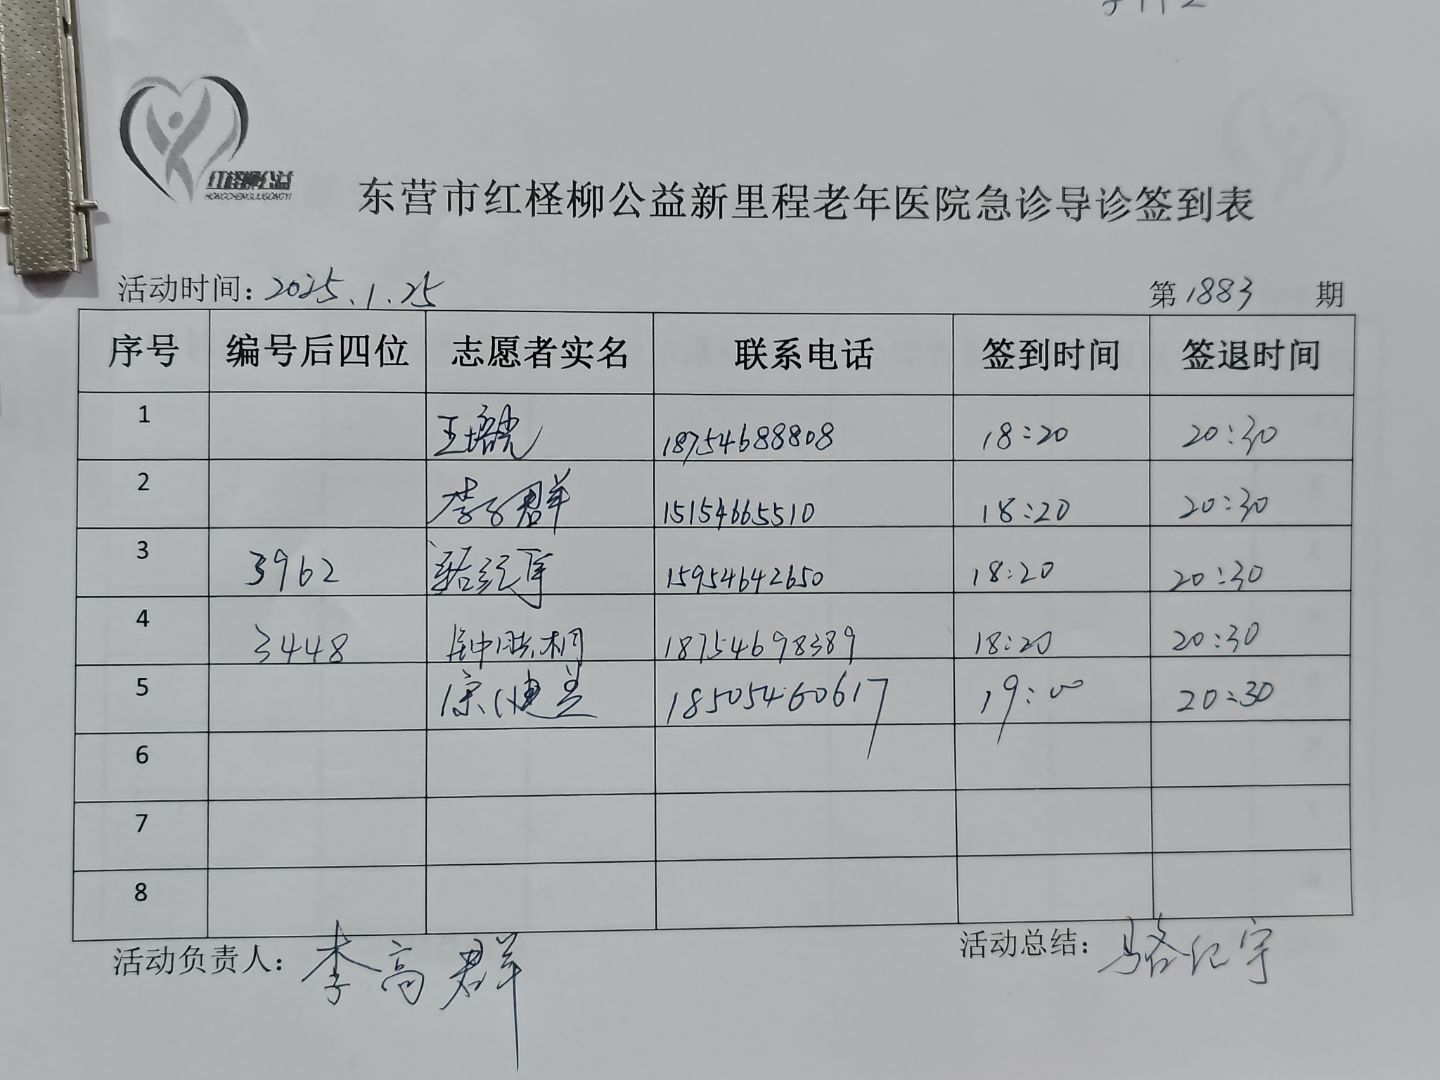 红柽柳公益
HONGCHENGLIUGONGYI
东营市红柽柳公益新里程老年医院急诊导诊签到表
活动时间: 2025.1.25 第1883期
序号 编号后四位 志愿者实名 联系电话 签到时间 签退时间
1 王 18754688808 18:20 20:30
2 李高群 15154665510 18:20 20:30
3 3962 骆纪宇 15954642650 18:20 20:30
4 3448 钟 桐 18754698389 18:20 20:30
5 健 18505460617 19:00 20:30
6
7
8
活动负责人: 李高群 活动总结: 骆纪宇